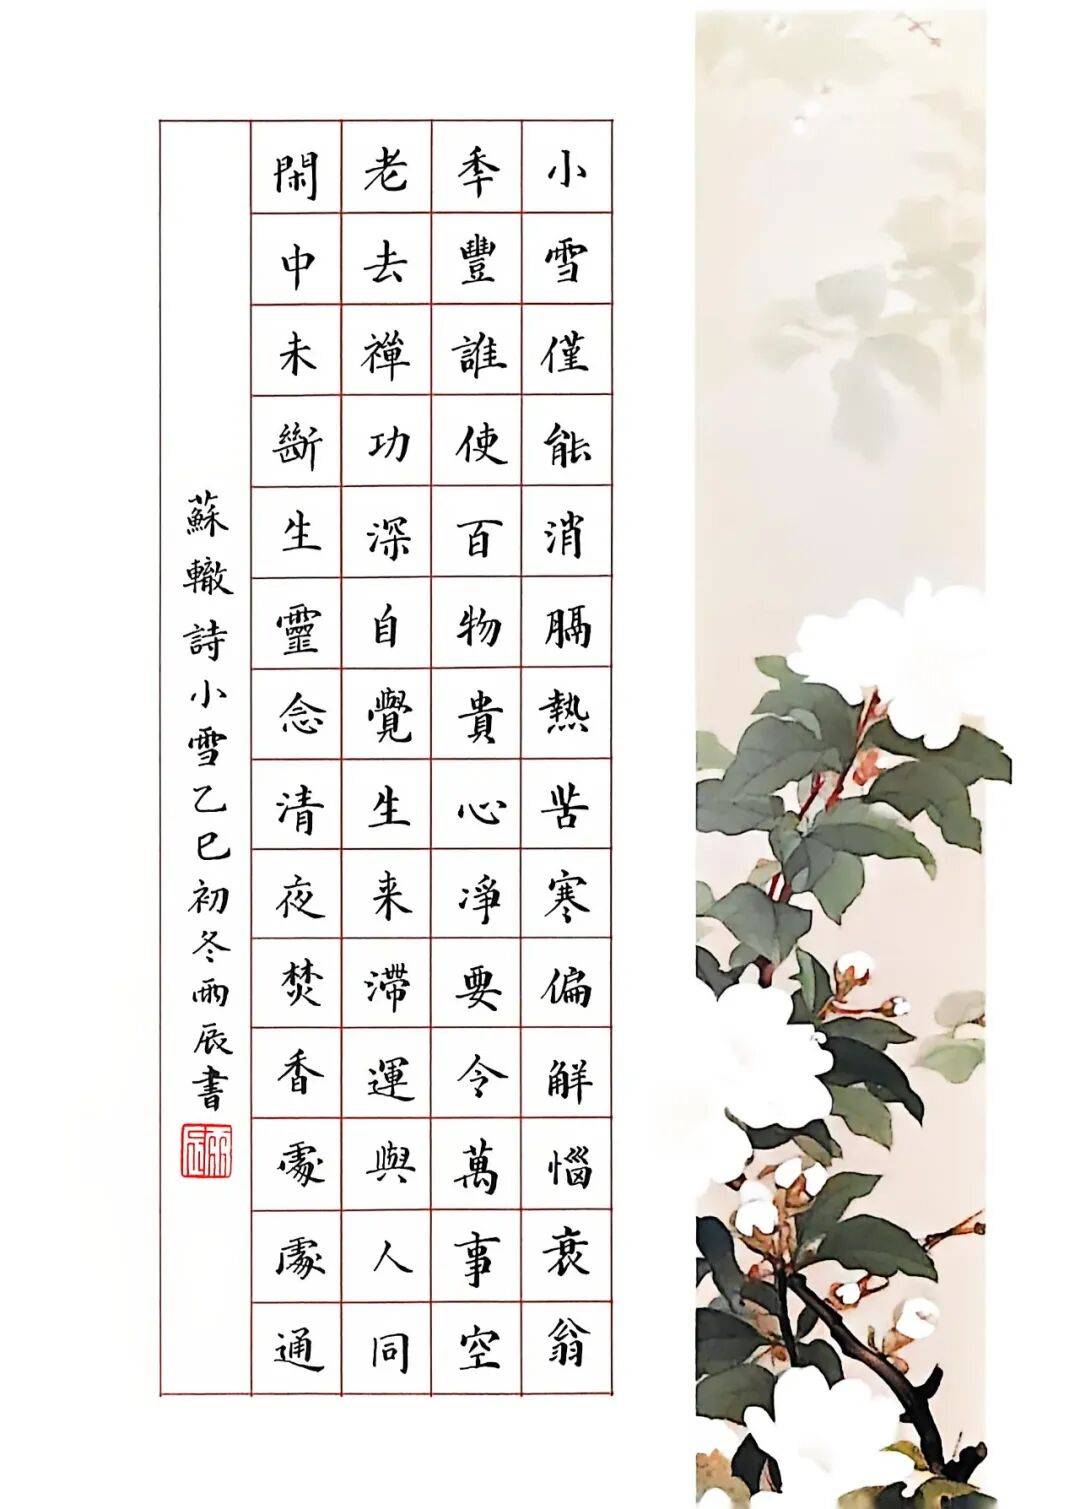 小雪僅能消膈熱苦寒偏解惱衰翁
秊豐誰使百物貴心淨要令萬事空
老去禪功深自覺生来滯運與人同
閑中未斷生靈念清夜焚香處處通
蘇轍詩小雪乙巳初冬雨辰書
雨辰